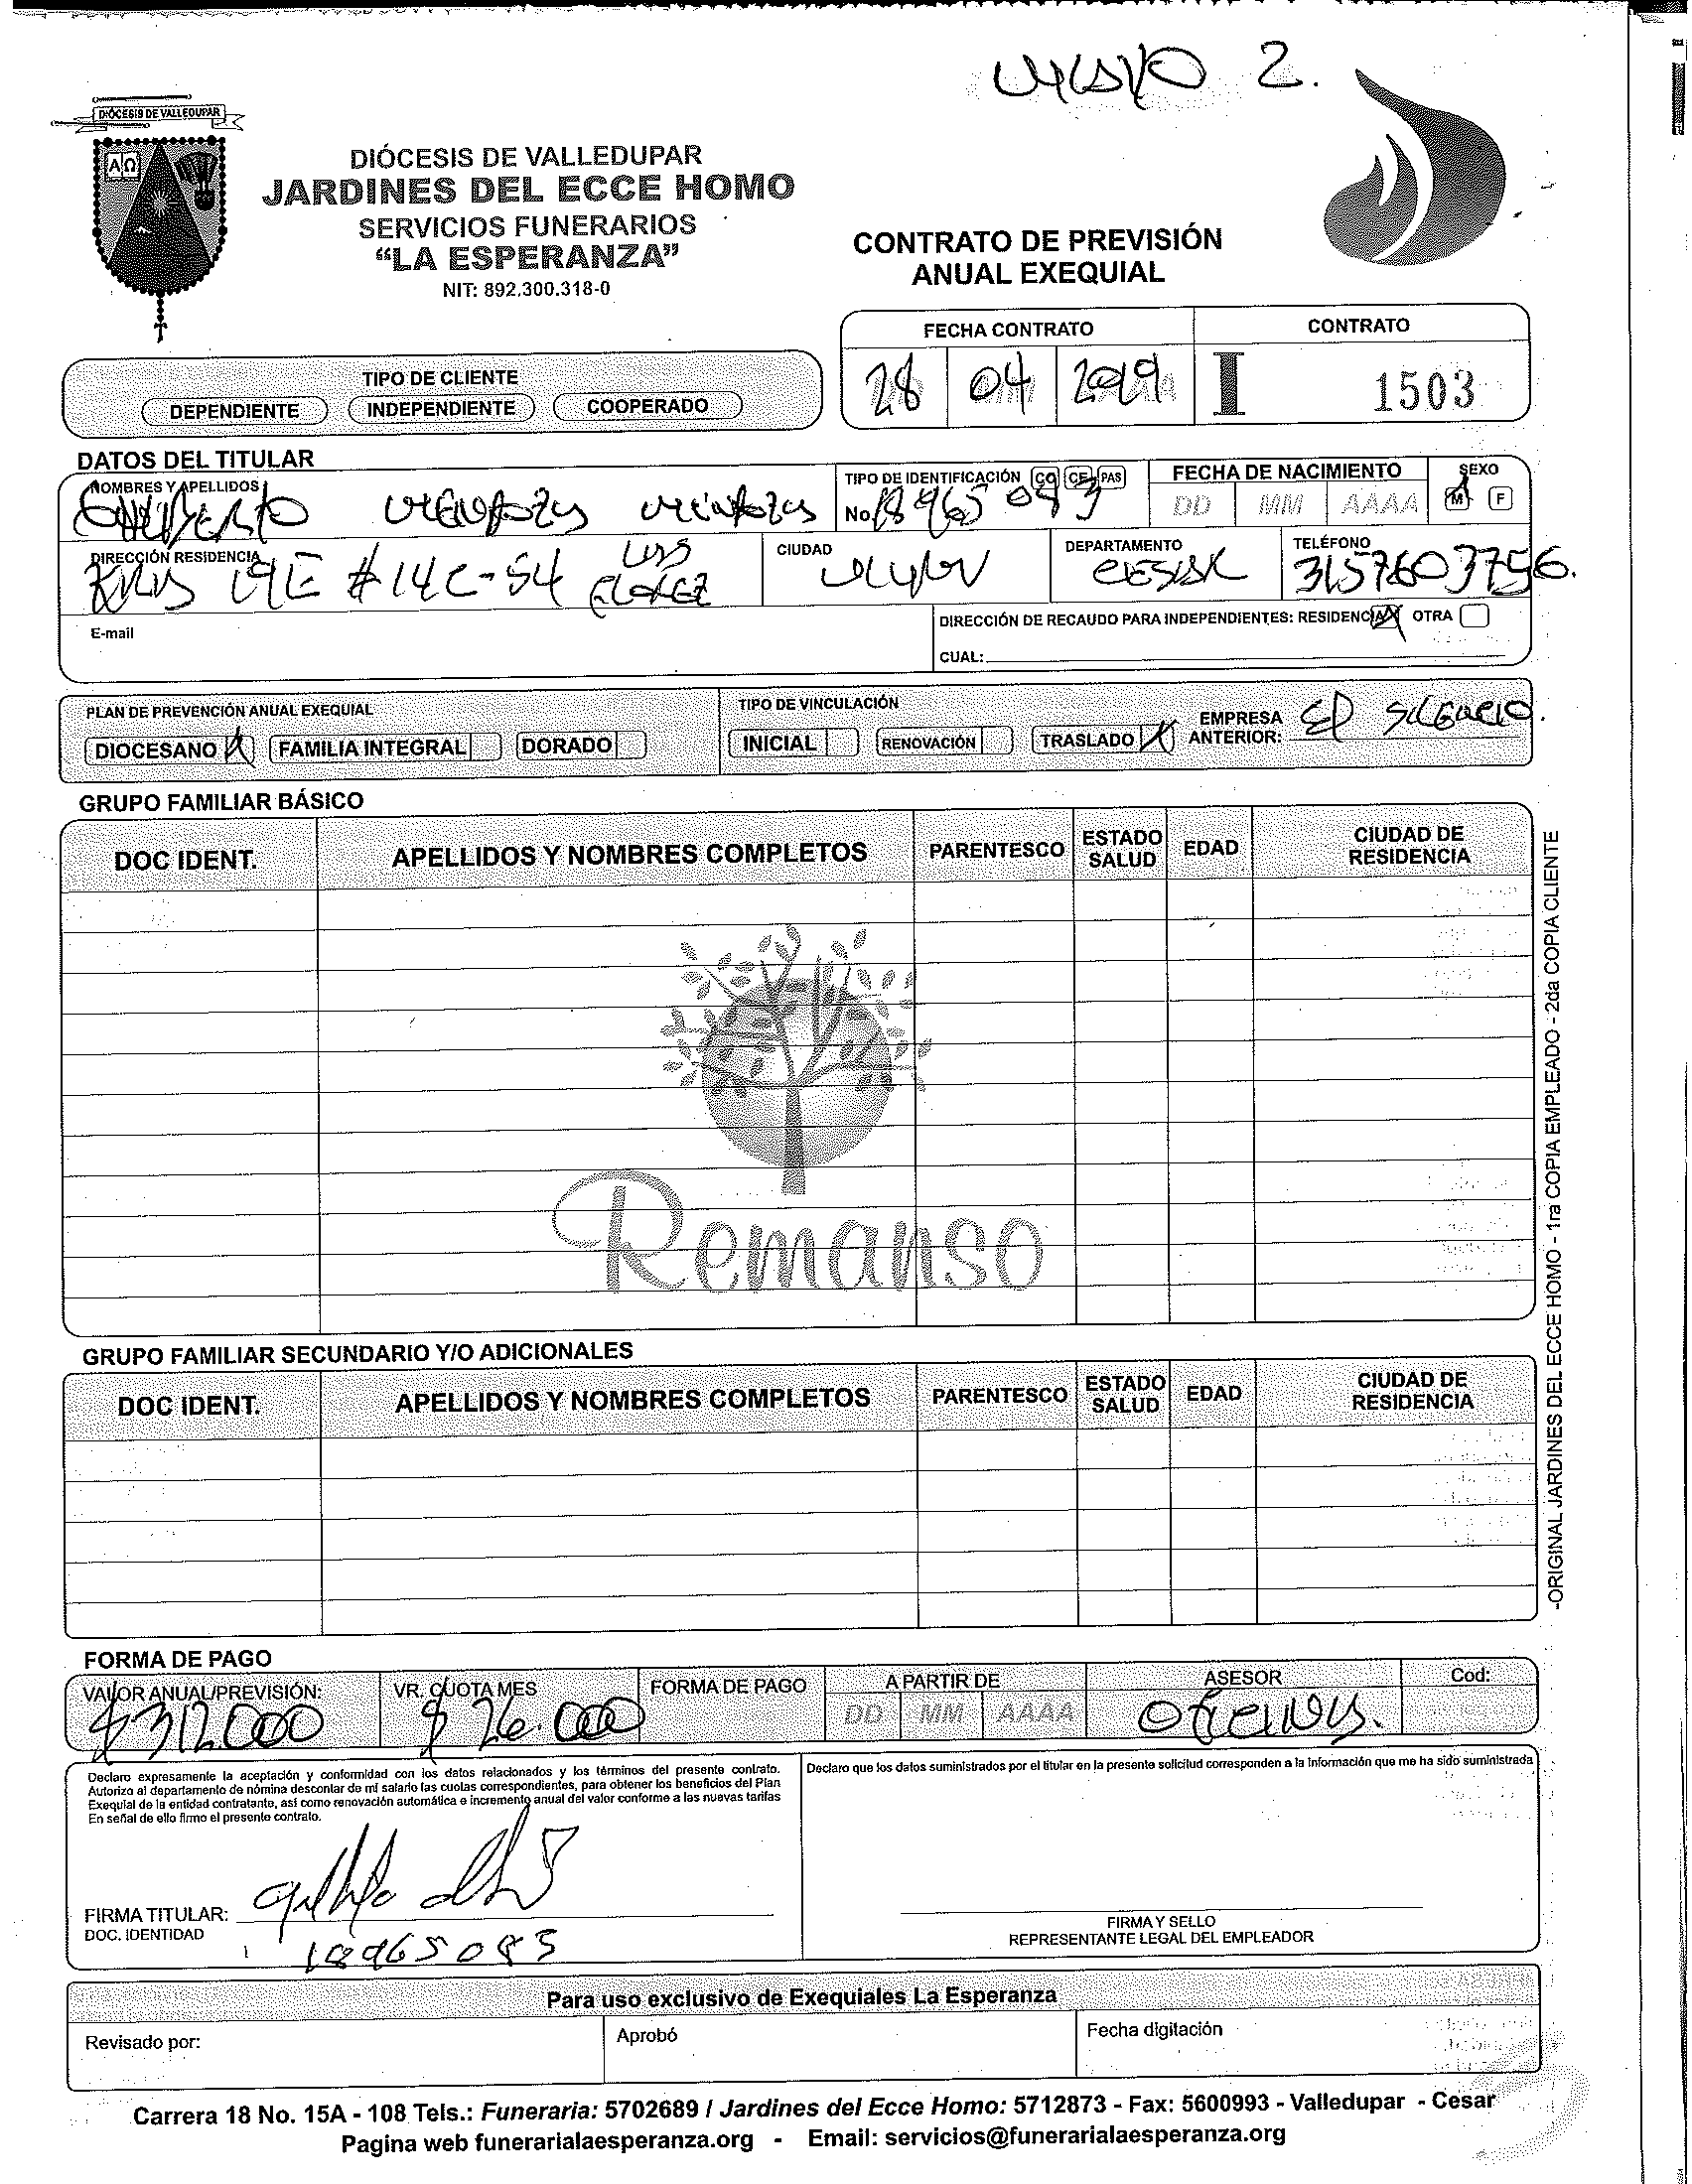 Mayo 2.
DIÓCESIS DE VALLEDUPAR
DIÓCESIS DE VALLEDUPAR
JARDINES DEL ECCE HOMO
SERVICIOS FUNERARIOS
“LA ESPERANZA”
NIT: 892.300.318-0
CONTRATO DE PREVISIÓN
ANUAL EXEQUIAL
FECHA CONTRATO CONTRATO
28 04 2019 I 1503
TIPO DE CLIENTE
DEPENDIENTE INDEPENDIENTE COOPERADO
DATOS DEL TITULAR
NOMBRES Y APELLIDOS TIPO DE IDENTIFICACIÓN CC CE PAS FECHA DE NACIMIENTO SEXO
Gilberto Mendoza Mendoza No. 18965083 DD MM AAAA M F
DIRECCIÓN RESIDENCIA CIUDAD DEPARTAMENTO TELÉFONO
19E #14C-54 Los Cesar 3157603756.
E-mail DIRECCIÓN DE RECAUDO PARA INDEPENDIENTES: RESIDENCIA OTRA
CUAL:
PLAN DE PREVENCIÓN ANUAL EXEQUIAL TIPO DE VINCULACIÓN
DIOCESANO X FAMILIA INTEGRAL DORADO INICIAL RENOVACIÓN TRASLADO X EMPRESA ANTERIOR:
GRUPO FAMILIAR BÁSICO
DOC IDENT. APELLIDOS Y NOMBRES COMPLETOS PARENTESCO ESTADO SALUD EDAD CIUDAD DE RESIDENCIA
Remanso
GRUPO FAMILIAR SECUNDARIO Y/O ADICIONALES
DOC IDENT. APELLIDOS Y NOMBRES COMPLETOS PARENTESCO ESTADO SALUD EDAD CIUDAD DE RESIDENCIA
FORMA DE PAGO
VALOR ANUAL/PREVISIÓN: VR. CUOTA MES FORMA DE PAGO A PARTIR DE ASESOR Cod:
$312.000 $26.000 DD MM AAAA Oficina.
Declaro expresamente la aceptación y conformidad con los datos relacionados y los términos del presente contrato.
Autorizo al departamento de nómina descontar de mi salario las cuotas correspondientes, para obtener los beneficios del Plan
Exequial de la entidad contratante, así como renovación automática e incremento anual del valor conforme a las nuevas tarifas
En señal de ello firmo el presente contrato.
Declaro que los datos suministrados por el titular en la presente solicitud corresponden a la información que me ha sido suministrada
FIRMA TITULAR:
DOC. IDENTIDAD 18965083
FIRMA Y SELLO
REPRESENTANTE LEGAL DEL EMPLEADOR
Para uso exclusivo de Exequiales La Esperanza
Revisado por: Aprobó Fecha digitación
Carrera 18 No. 15A - 108 Tels.: Funeraria: 5702689 / Jardines del Ecce Homo: 5712873 - Fax: 5600993 - Valledupar - Cesar
Pagina web funerarialaesperanza.org - Email: servicios@funerarialaesperanza.org
-ORIGINAL JARDINES DEL ECCE HOMO - 1ra COPIA EMPLEADO - 2da COPIA CLIENTE